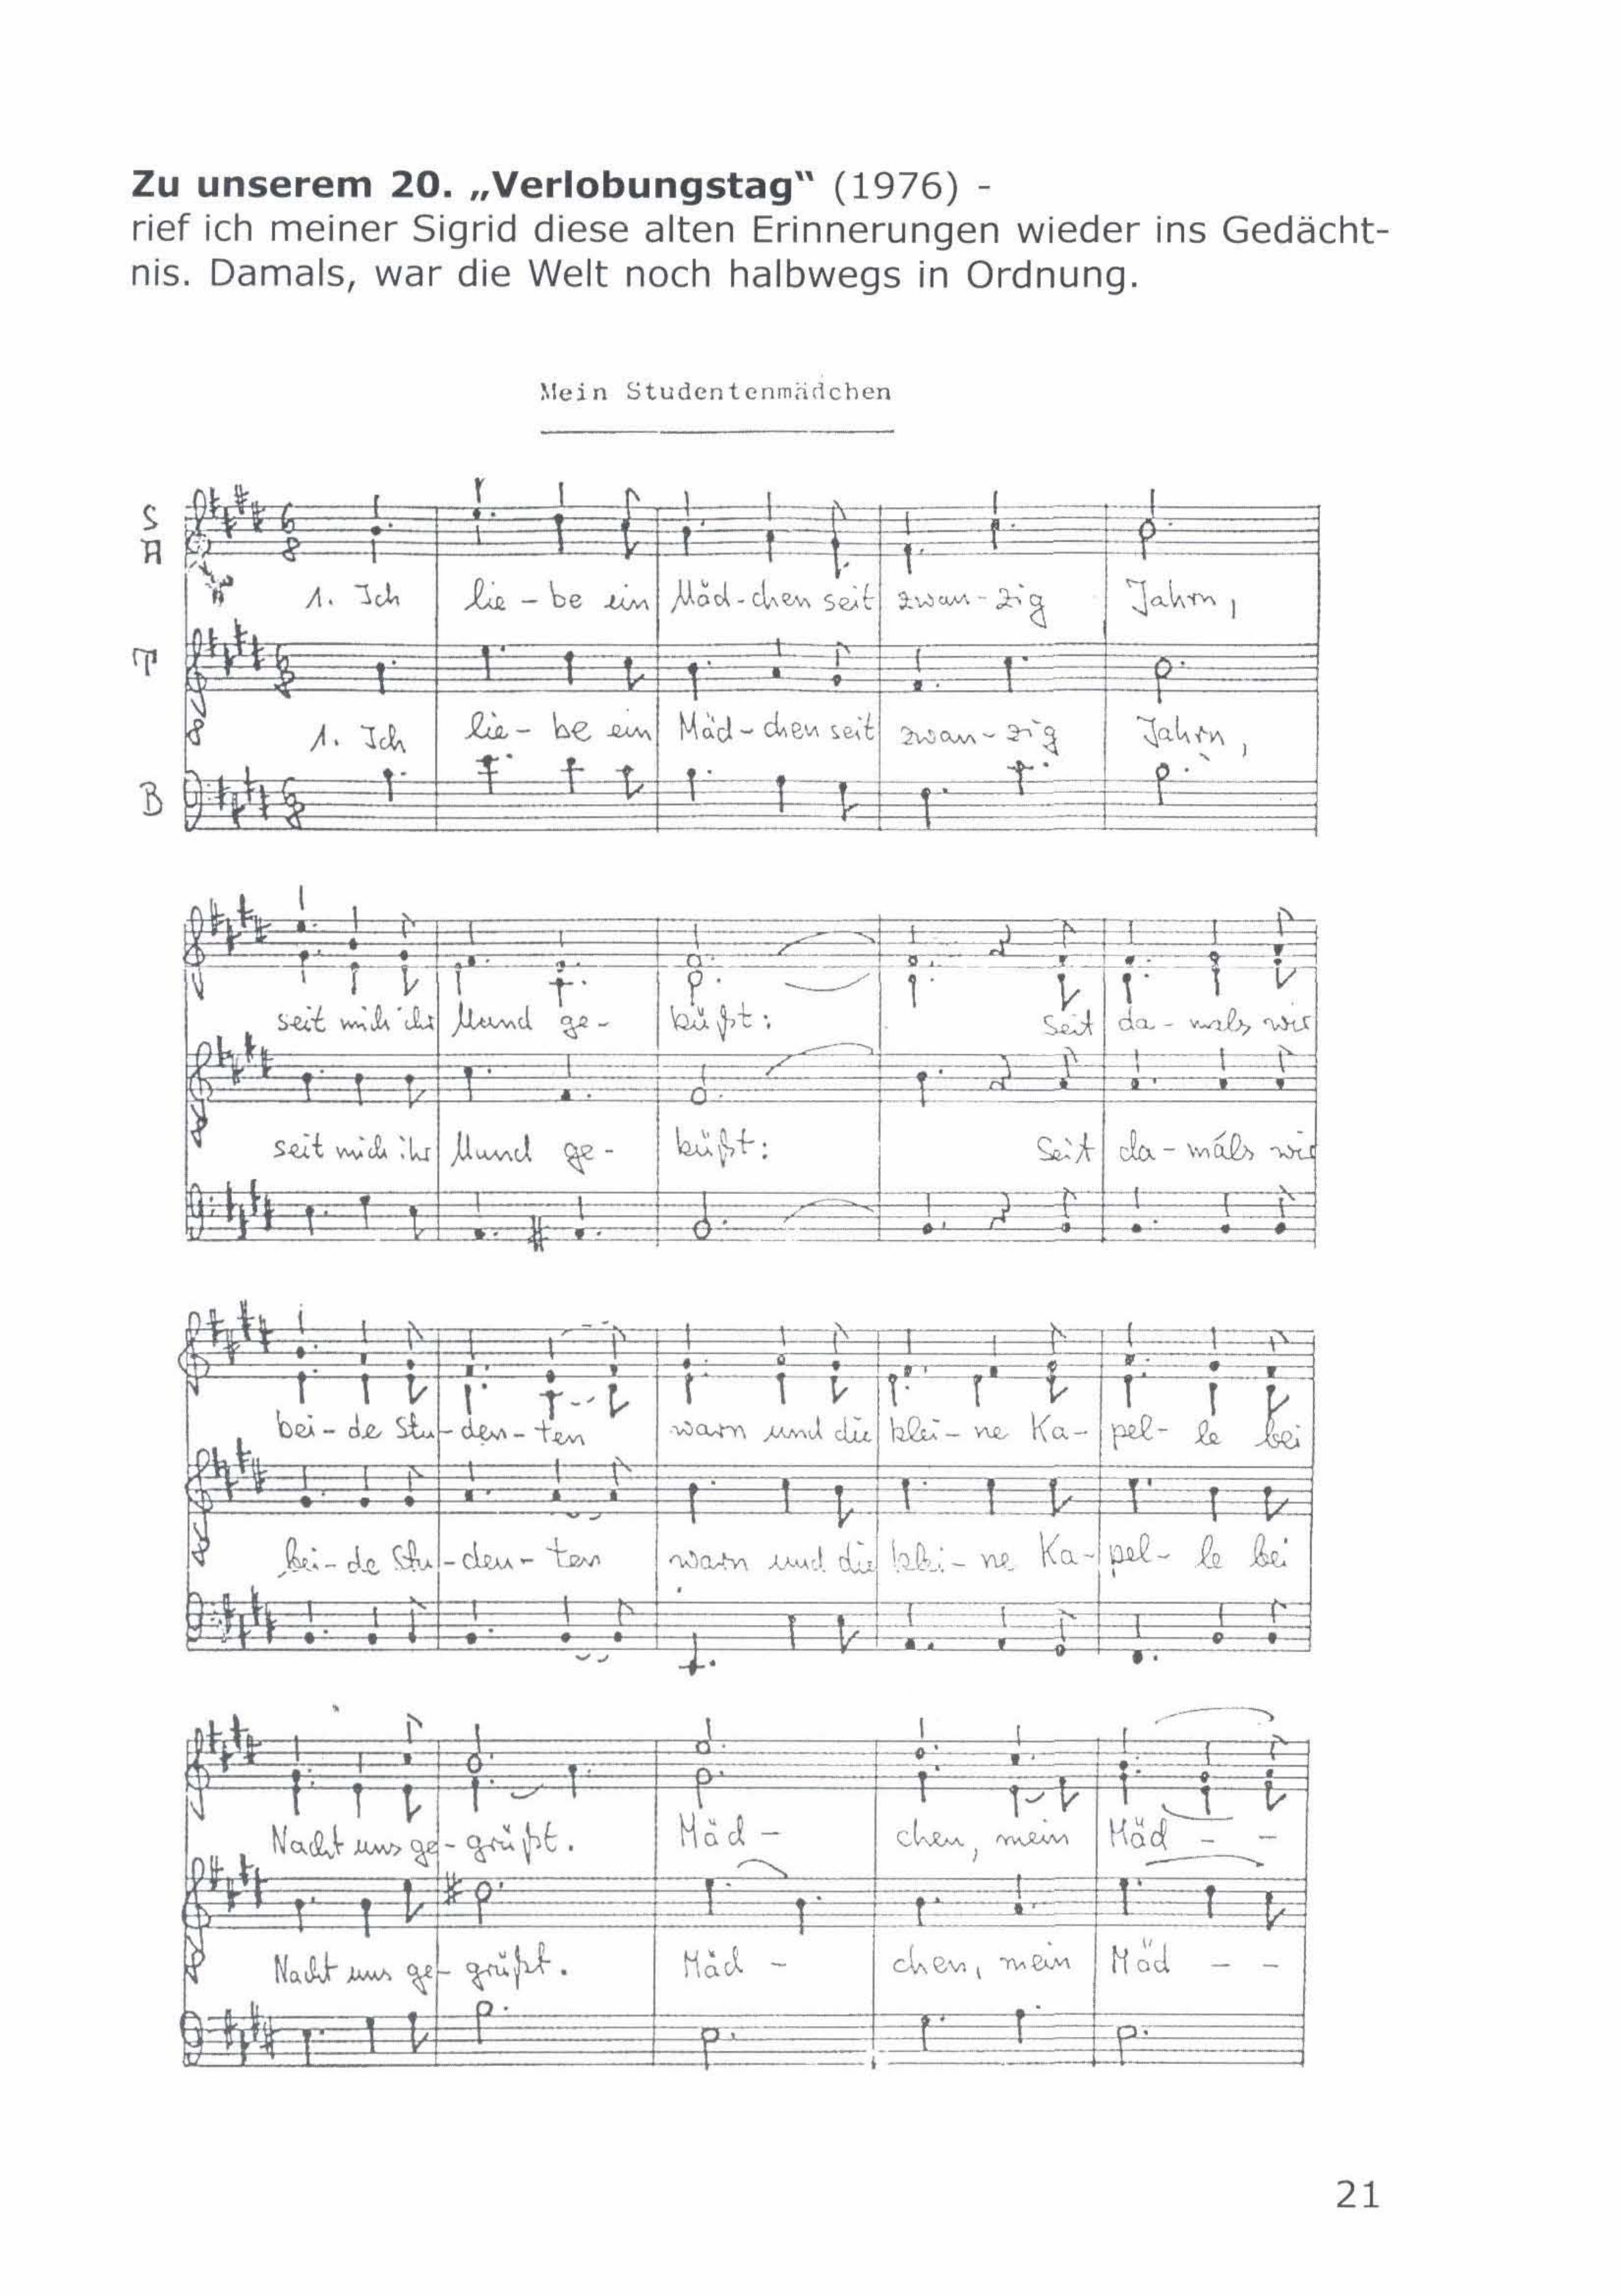 Zu unserem 20. „Verlobungstag“ (1976) -
rief ich meiner Sigrid diese alten Erinnerungen wieder ins Gedächt-
nis. Damals, war die Welt noch halbwegs in Ordnung.
Mein Studentenmädchen
S
A
1. Ich lie - be ein Mäd - chen seit zwan - zig Jahrn,
T
1. Ich lie - be ein Mäd - chen seit zwan - zig Jahrn,
B
seit mich ihr Mund ge - küßt: Seit da - mals wir
seit mich ihr Mund ge - küßt: Seit da - mals wir
bei - de Stu - den - ten warn und die klei - ne Ka - pel - le bei
bei - de Stu - den - ten warn und die klei - ne Ka - pel - le bei
Nacht uns ge - grüßt. Mäd - chen, mein Mäd - -
Nacht uns ge - grüßt. Mäd - chen, mein Mäd - -
21